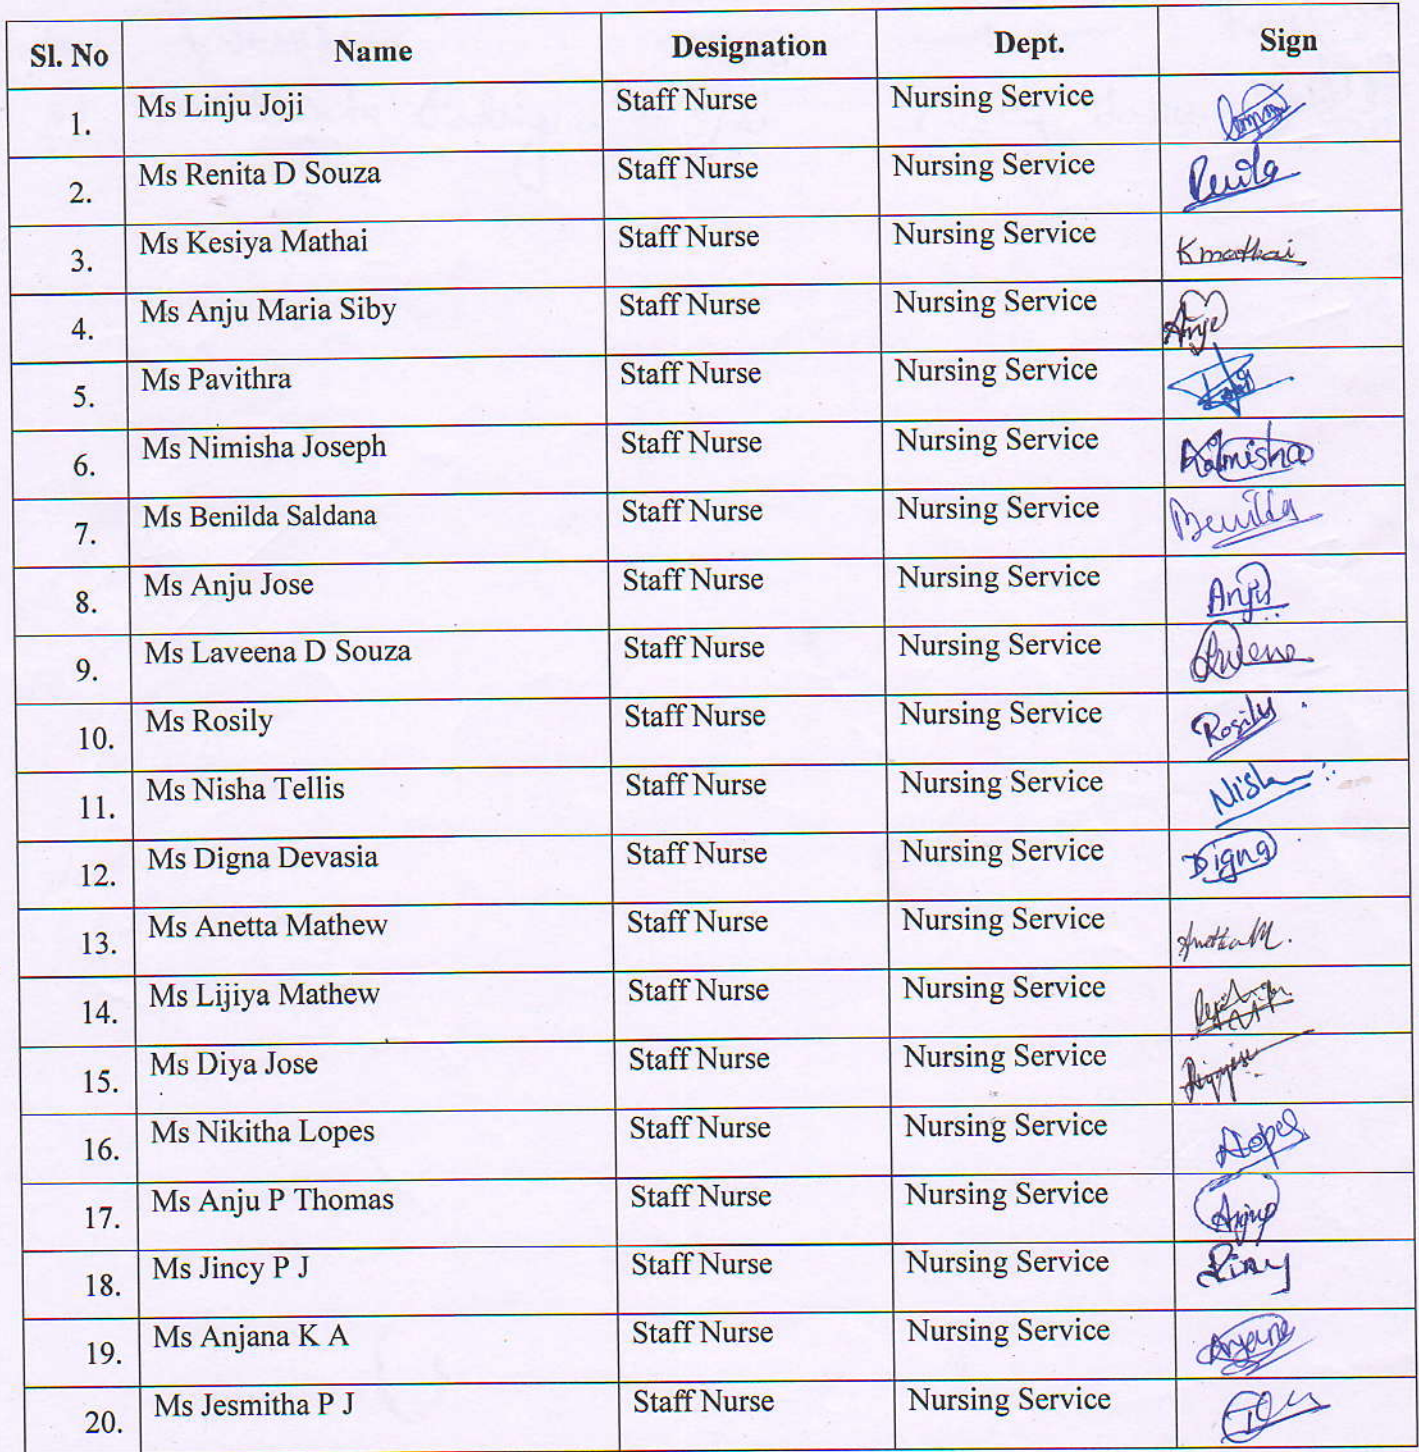 Sl. No Name Designation Dept. Sign
1. Ms Linju Joji Staff Nurse Nursing Service
2. Ms Renita D Souza Staff Nurse Nursing Service Renita
3. Ms Kesiya Mathai Staff Nurse Nursing Service Kmathai
4. Ms Anju Maria Siby Staff Nurse Nursing Service Anju
5. Ms Pavithra Staff Nurse Nursing Service
6. Ms Nimisha Joseph Staff Nurse Nursing Service
7. Ms Benilda Saldana Staff Nurse Nursing Service Benilda
8. Ms Anju Jose Staff Nurse Nursing Service Anju
9. Ms Laveena D Souza Staff Nurse Nursing Service
10. Ms Rosily Staff Nurse Nursing Service Rosily
11. Ms Nisha Tellis Staff Nurse Nursing Service Nisha
12. Ms Digna Devasia Staff Nurse Nursing Service Digna
13. Ms Anetta Mathew Staff Nurse Nursing Service Anetta M.
14. Ms Lijiya Mathew Staff Nurse Nursing Service
15. Ms Diya Jose Staff Nurse Nursing Service
16. Ms Nikitha Lopes Staff Nurse Nursing Service Lopes
17. Ms Anju P Thomas Staff Nurse Nursing Service
18. Ms Jincy P J Staff Nurse Nursing Service
19. Ms Anjana K A Staff Nurse Nursing Service Anjana
20. Ms Jesmitha P J Staff Nurse Nursing Service